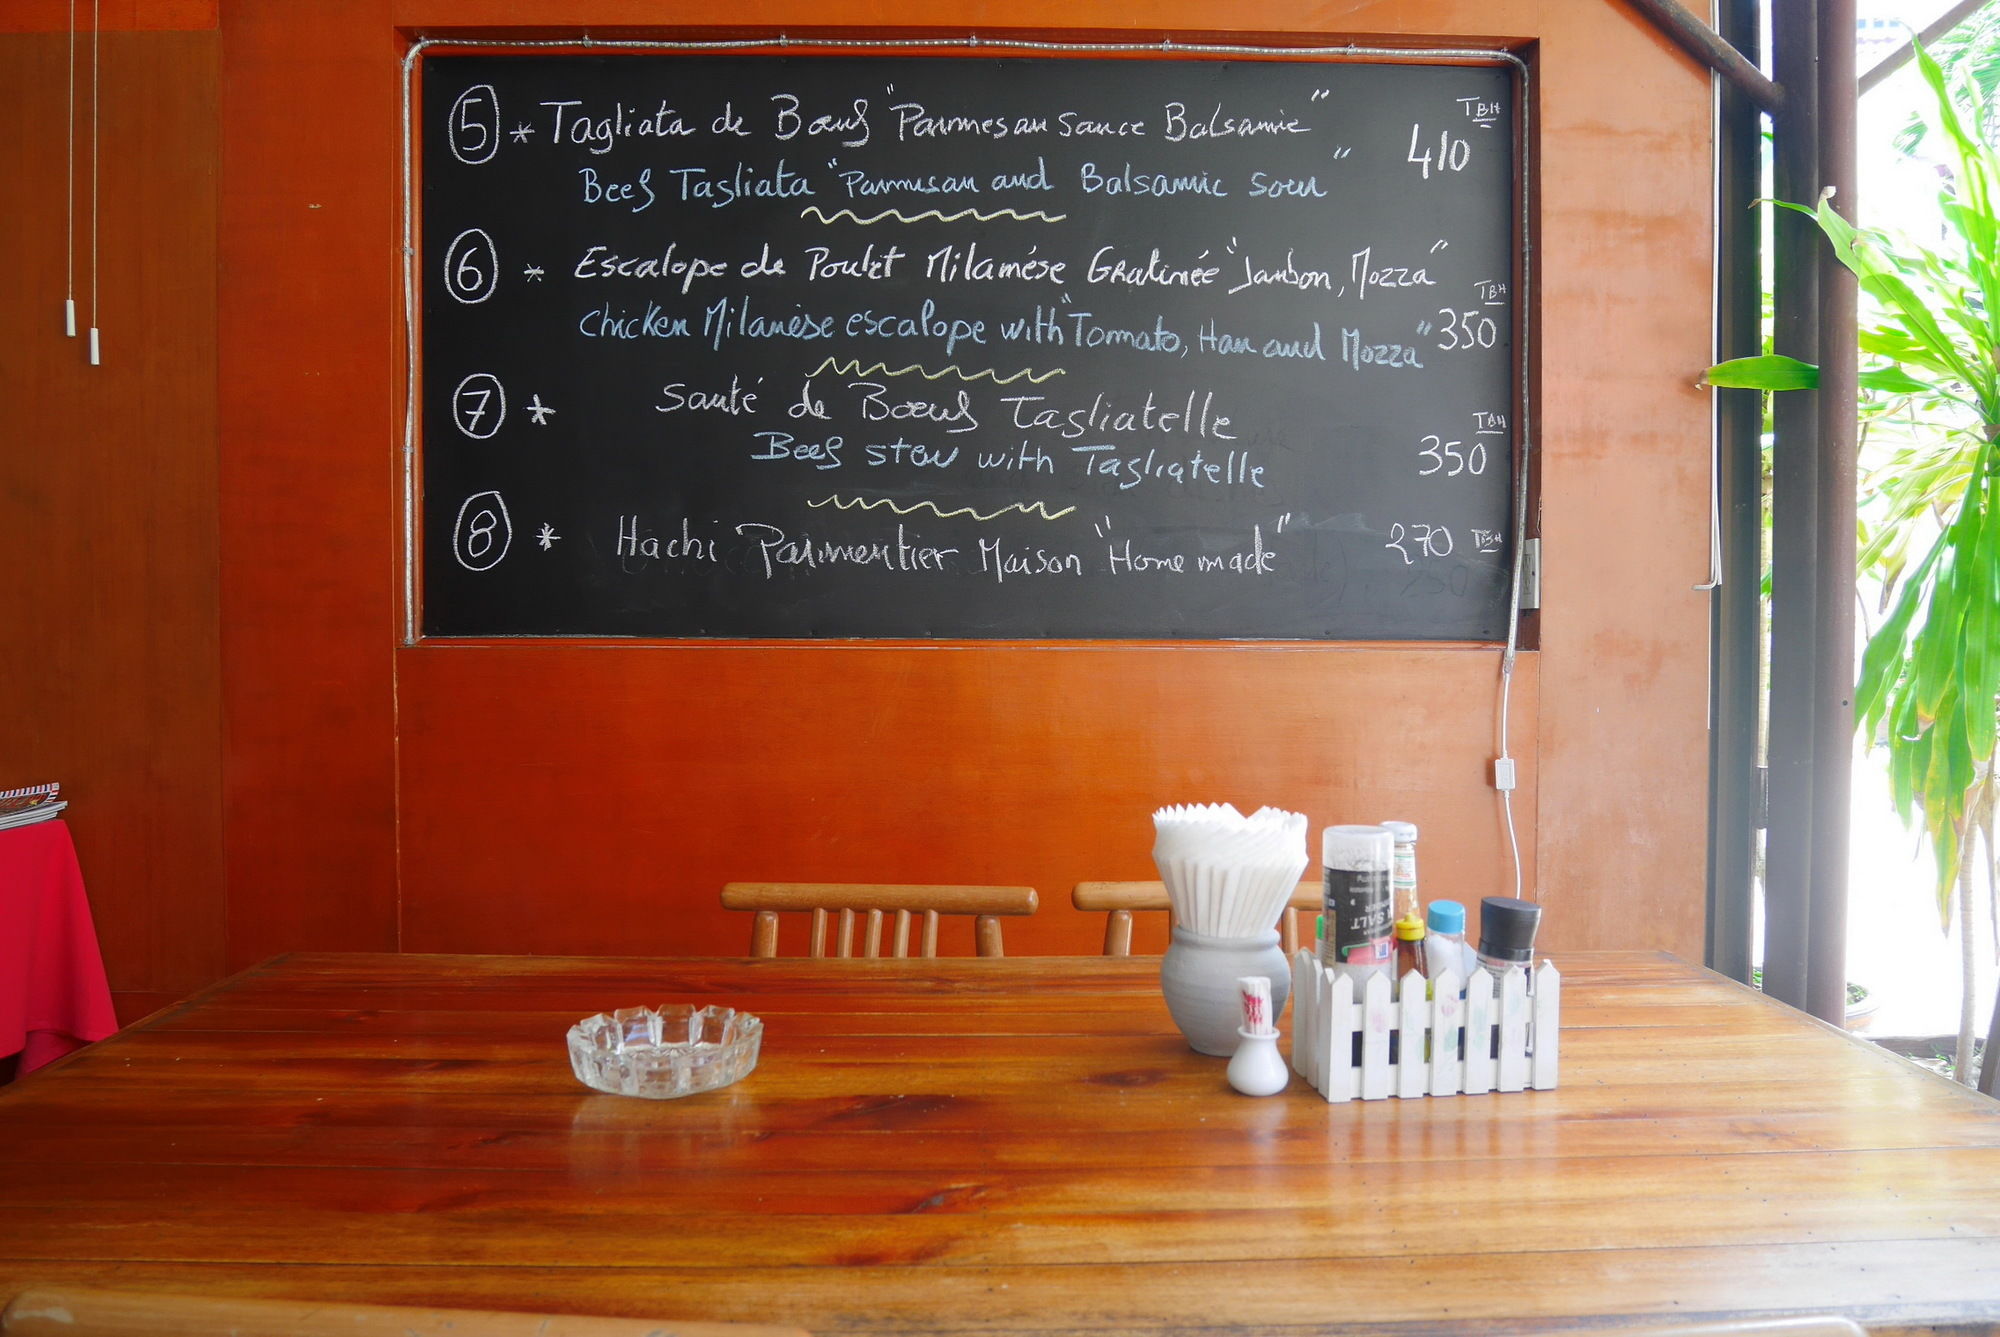 5 * Tagliata de Bœuf "Parmesan sauce Balsamic" 410 TBH
Beef Tagliata "Parmesan and Balsamic sour"
6 * Escalope de Poulet Milanése Gratinée "Jambon, Mozza"
Chicken Milanése escalope with "Tomato, Ham and Mozza" 350 TBH
7 * Sauté de Bœuf Tagliatelle
Beef stew with Tagliatelle 350 TBH
8 * Hachi Parmentier Maison "Home made" 270 TBH
SALT